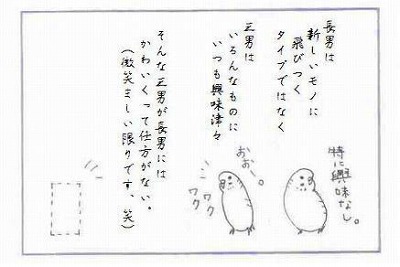 長男は
新しいモノに
飛びつく
タイプではなく
三男は
いろんなものに
いつも興味津々
そんな三男が長男には
かわいくって仕方がない。
(微笑ましい限りです、笑)
特に興味なし。
おおー。
ワク
ワク